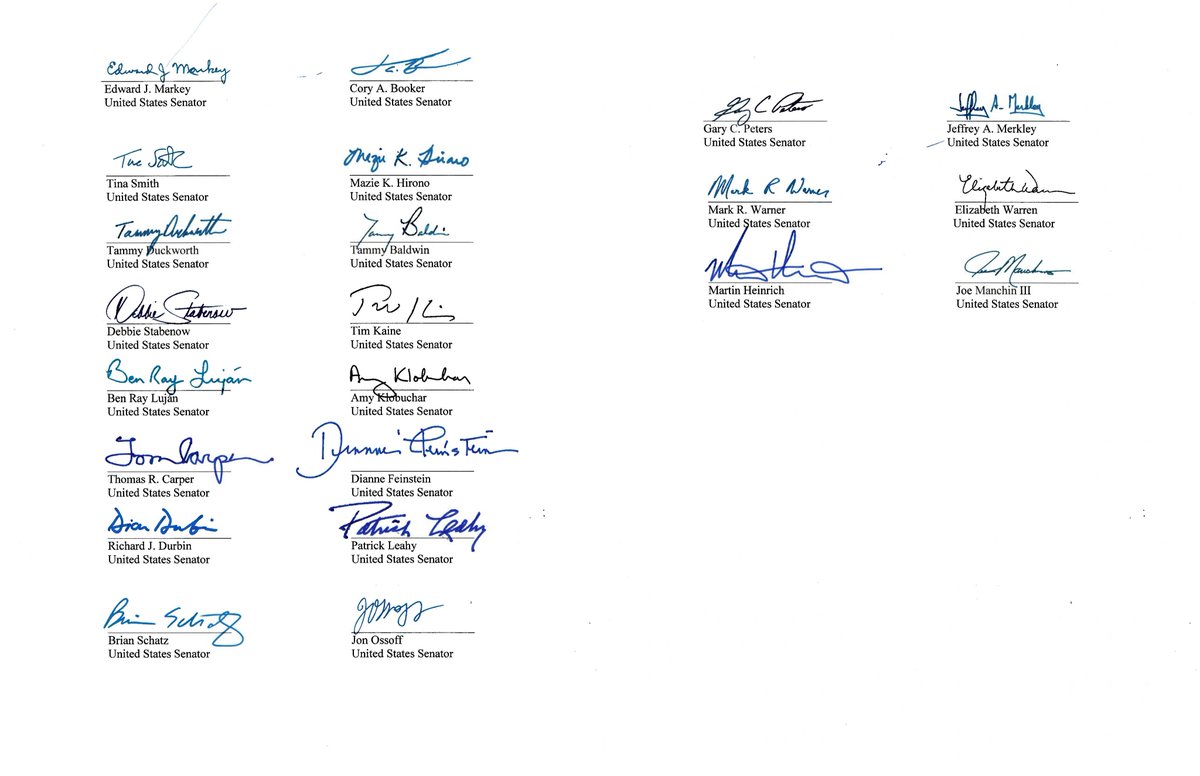 Edward J Markey
Edward J. Markey
United States Senator
Cory A. Booker
United States Senator
Tina Smith
Tina Smith
United States Senator
Mazie K. Hirono
Mazie K. Hirono
United States Senator
Tammy Duckworth
Tammy Duckworth
United States Senator
Tammy Baldwin
Tammy Baldwin
United States Senator
Debbie Stabenow
Debbie Stabenow
United States Senator
Tim Kaine
United States Senator
Ben Ray Luján
Ben Ray Luján
United States Senator
Amy Klobuchar
Amy Klobuchar
United States Senator
Tom Carper
Thomas R. Carper
United States Senator
Dianne Feinstein
Dianne Feinstein
United States Senator
Dick Durbin
Richard J. Durbin
United States Senator
Patrick Leahy
Patrick Leahy
United States Senator
Brian Schatz
Brian Schatz
United States Senator
Jon Ossoff
United States Senator
Gary C Peters
Gary C. Peters
United States Senator
Jeffrey A. Merkley
Jeffrey A. Merkley
United States Senator
Mark R Warner
Mark R. Warner
United States Senator
Elizabeth Warren
Elizabeth Warren
United States Senator
Martin Heinrich
United States Senator
Joe Manchin
Joe Manchin III
United States Senator